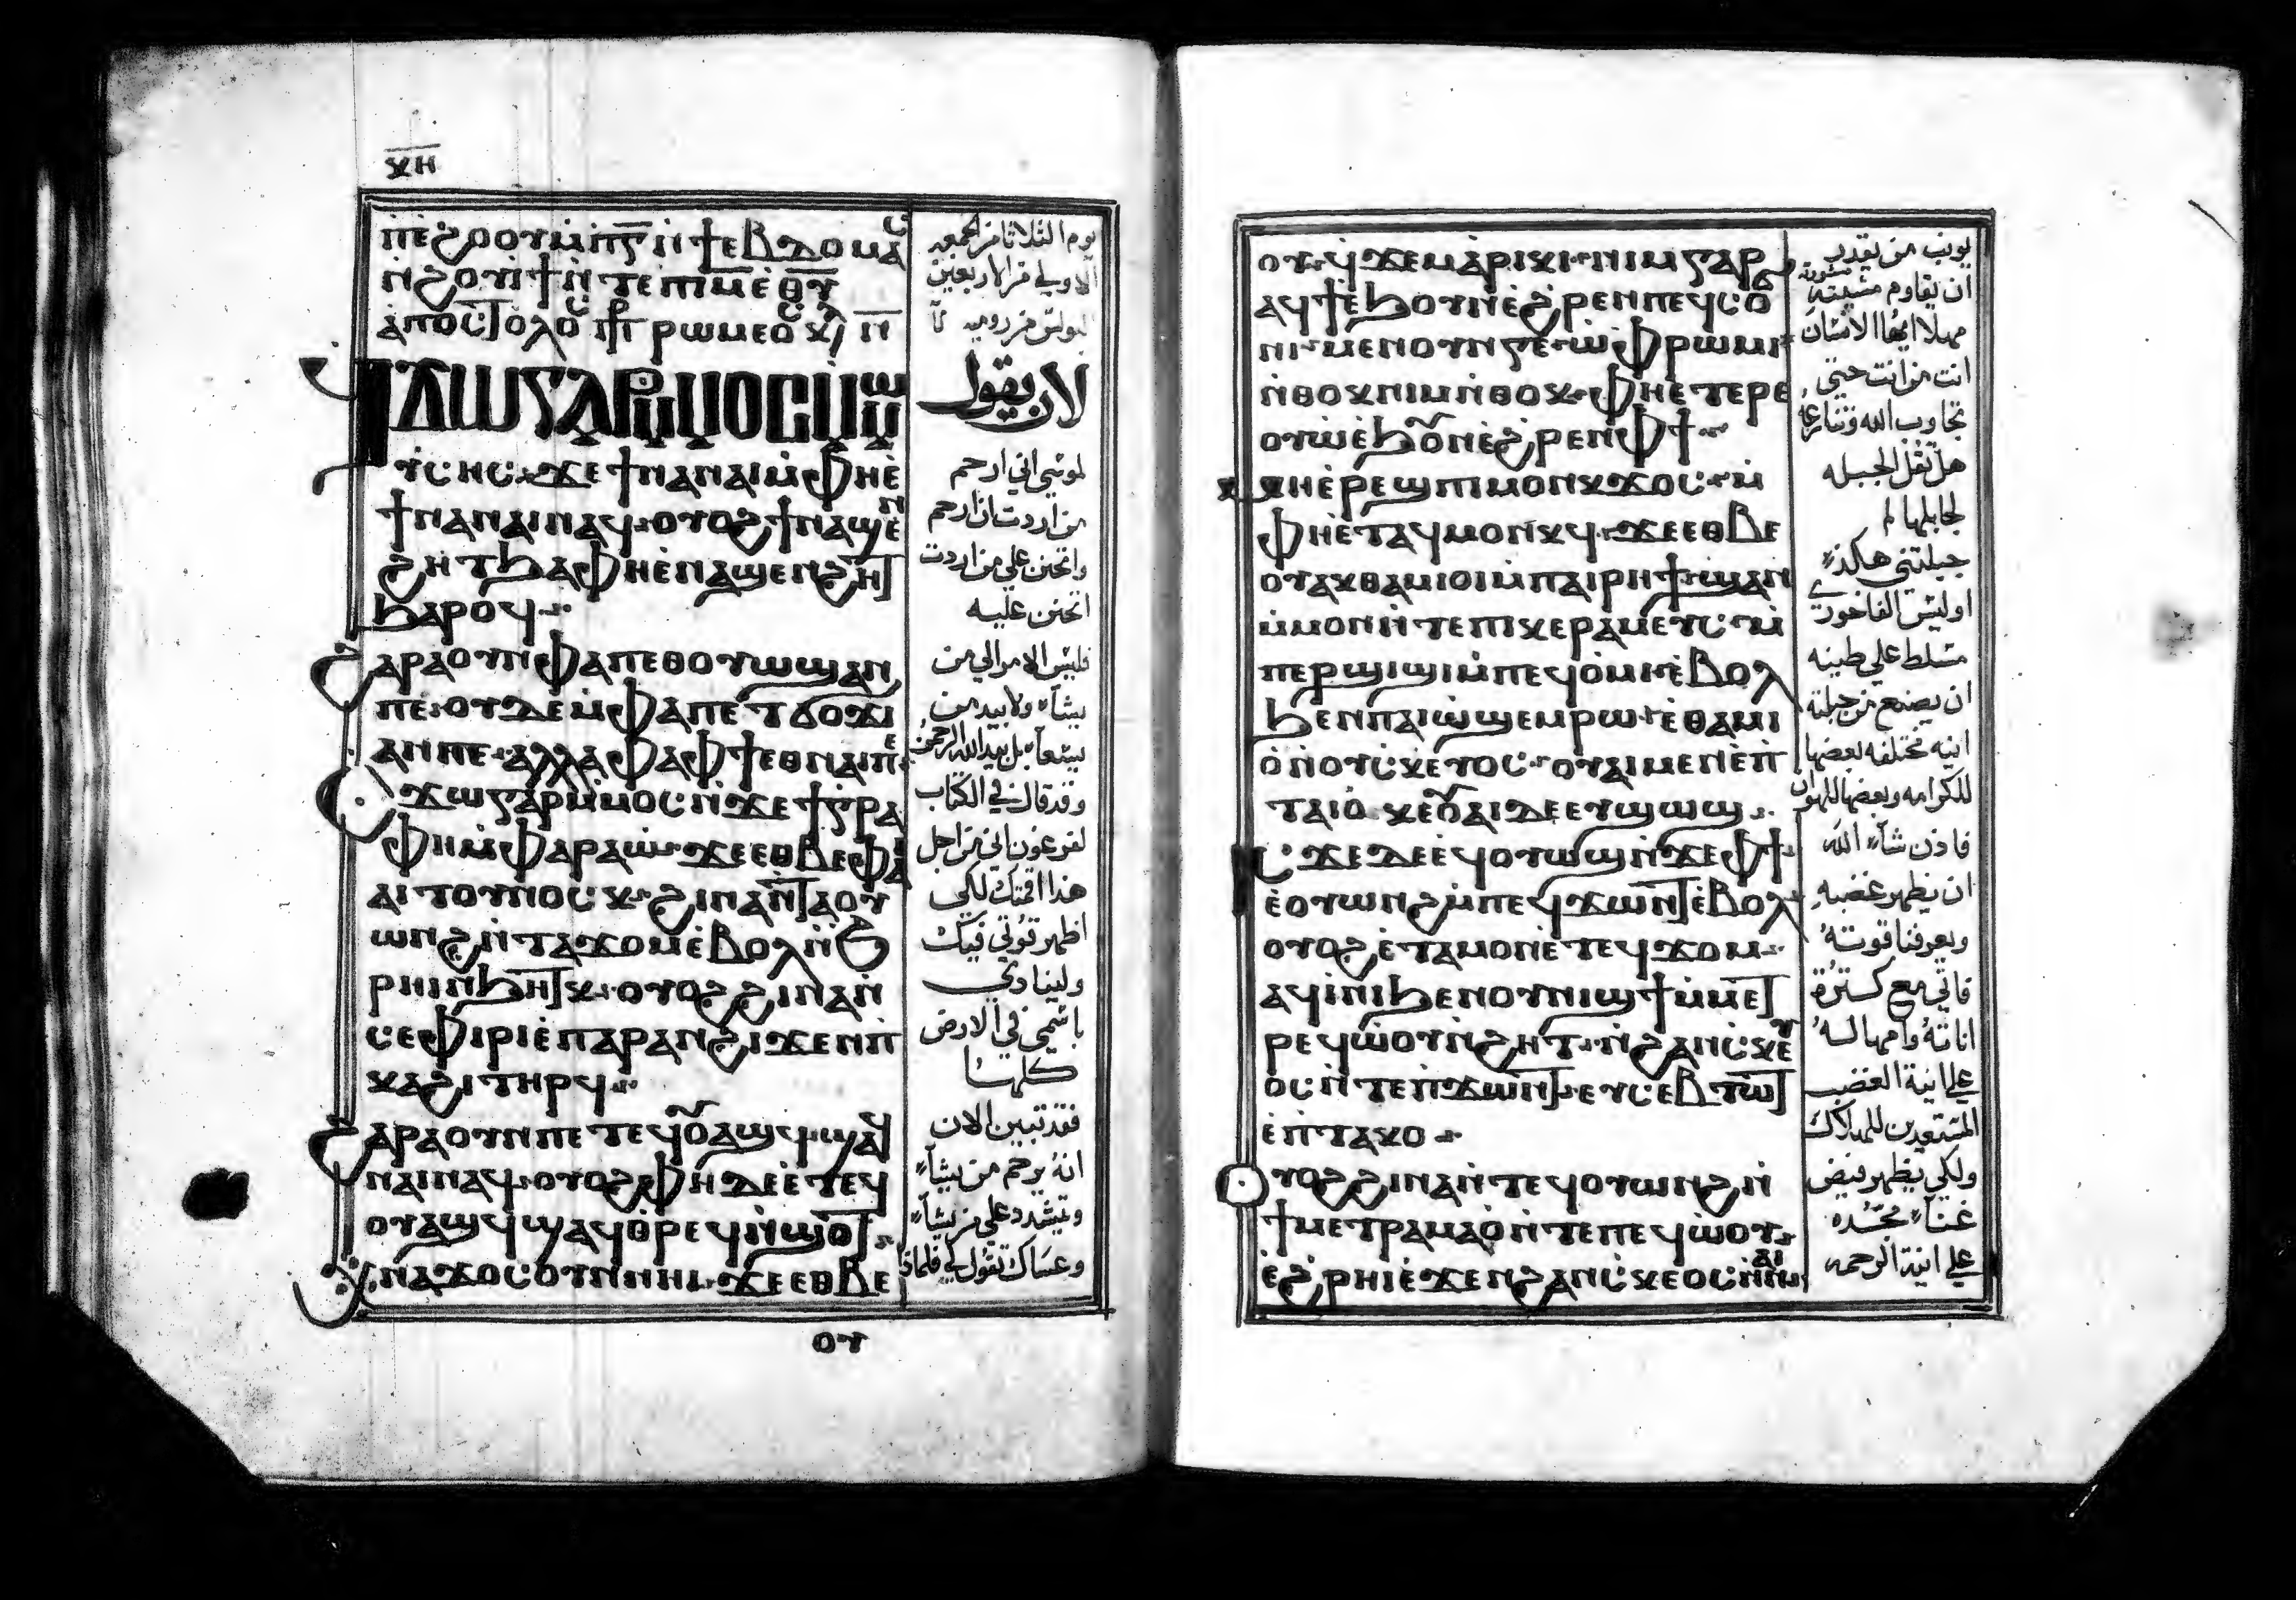 ⲭⲏ
ⲡⲉϩⲟⲟⲩ ⲙ̀ⲡ̅ⲅ̅ ⲛ̀ϯⲉⲃⲇⲟⲙⲁⲥ
ⲛ̀ϩⲟⲩⲓ̀ϯ ⲛ̀ⲧⲉ ⲡⲓⲙ̅ ⲉ̀ⲑ̅ⲩ̅
ⲗⲁⲱⲅⲁⲣ ⲙ̀ⲙⲟⲥ ⲙ̀ⲙⲱ
ⲩⲥⲏⲥ: ϫⲉ ϯⲛⲁⲛⲁⲓ ⲙ̀ⲫⲏⲉ̀
ϯⲛⲁⲛⲁⲓ ⲛⲁϥ: ⲟⲩⲟϩ ϯⲛⲁϣⲉⲛ
ϩⲏⲧ ϧⲁ ⲫⲏⲉ̀ⲛⲁϣⲉⲛϩⲏⲧ
ϧⲁⲣⲟϥ
ϩⲁⲣⲁ ⲟⲩⲛ ⲫⲁ ⲡⲉⲑⲟⲩⲱϣ ⲁⲛ
ⲡⲉ: ⲟⲩⲇⲉ ⲙ̀ⲫⲁ ⲡⲉⲧϭⲟϫⲓ
ⲁⲛ ⲡⲉ: ⲁⲗⲗⲁ ⲫⲁ ⲫϯ ⲉⲑⲛⲁⲓ ⲡⲉ:
ϫⲱ ⲅⲁⲣ ⲙ̀ⲙⲟⲥ ⲛ̀ϫⲉ ϯⲅⲣⲁ
ⲫⲏ ⲙ̀ⲫⲁⲣⲁⲱ: ϫⲉ ⲉⲑⲃⲉ ⲫⲁⲓ
ⲁⲓⲧⲟⲩⲛⲟⲥⲕ: ϩⲓⲛⲁ ⲛ̀ⲧⲁⲟⲩ
ⲱⲛϩ ⲛ̀ⲧⲁϫⲟⲙ ⲉ̀ⲃⲟⲗ ⲛ̀ϩ
ⲣⲏⲓ ⲛ̀ϧⲏⲧⲕ: ⲟⲩⲟϩ ϩⲓⲛⲁ ⲛ̀
ⲥⲉⲫⲓⲣⲓ ⲉ̀ⲡⲁⲣⲁⲛ ϩⲓϫⲉⲛ ⲡ̀
ⲕⲁϩⲓ ⲧⲏⲣϥ
ϩⲁⲣⲁ ⲟⲩⲛ ⲡⲉⲧⲉϥⲟⲩⲁϣϥ ϣⲁϥ
ⲛⲁⲓ ⲛⲁϥ: ⲟⲩⲟϩ ⲫⲏ ⲇⲉ ⲉ̀ⲧⲉϥ
ⲟⲩⲁϣϥ ϣⲁϥⲑⲣⲉϥⲛ̀ϣⲟⲧ
ⲭⲛⲁϫⲟⲥ ⲟⲩⲛ ⲛⲏⲓ: ϫⲉ ⲉⲑⲃⲉ
ⲟⲩ
يوم الثلاثا من الجمعه
الاولي من الاربعين
لان يقول
لموسي اني ارحم
من اردت ان ارحم
واتحنن علي من اردت
اتحنن عليه
فليس الامر الي من
يشآء ولا بيد من
يسعآ بل بيد الله الرحمن
وقد قال في الكتاب
لفرعون اني من اجل
هذا اقمتك لكي
اظهر قوتي فيك
ولينادي
باسمي في الارض
كلها
فقد تبين الان
انهُ يرحم من يشآء
ويشدد علي من يشآء
وعساك تقول لي فلماذا
ⲟⲩ: ϥϫⲉⲙ ⲁⲣⲓⲕⲓ: ⲛⲓⲙ ⲅⲁⲣ ⲡⲉ
ⲁϥϯ ⲉ̀ϧⲟⲩⲛ ⲉ̀ϩⲣⲉⲛ ⲡⲉϥⲥⲟϭ
ⲛⲓ: ⲙⲉⲛⲟⲩⲛⲅⲉ: ⲱ̀ ⲫⲣⲱⲙⲓ
ⲛ̀ⲑⲟⲕ ⲛⲓⲙ ⲛ̀ⲑⲟⲕ: ⲫⲏⲉ̀ⲧⲉⲣⲉ
ⲟⲩⲱ ⲉ̀ϧⲟⲩⲛ ⲉ̀ϩⲣⲉⲛ ⲫϯ
ⲙⲏ ⲉ̀ⲣⲉ ⲡⲓⲙⲟⲛⲕ ϫⲟⲥ: ⲙ̀
ⲫⲏⲉ̀ⲧⲁϥⲙⲟⲛⲕϥ: ϫⲉ ⲉⲑⲃⲉ
ⲟⲩ ⲁⲕⲑⲁⲙⲓⲟⲓ ⲙ̀ⲡⲁⲓⲣⲏϯ: ϣⲁⲛ
ⲙ̀ⲙⲟⲛ ⲛ̀ⲧⲉ ⲡⲓⲕⲉⲣⲁⲙⲉⲩⲥ: ⲙ̀
ⲡⲉⲣϣⲓϣⲓ ⲙ̀ⲡⲉϥⲟ̀ⲙⲓ: ⲉ̀ⲃⲟⲗ
ϧⲉⲛ ⲡⲁⲓⲱ̀ϣⲉⲙ ⲣⲱ: ⲉ̀ⲑⲁⲙⲓ
ⲟ̀ ⲛ̀ⲟⲩⲥⲕⲉⲩⲟⲥ: ⲟⲩⲁⲓ ⲙⲉⲛ ⲉ̀ⲡ̀
ⲧⲁⲓⲟ̀ ⲕⲉⲟⲩⲁⲓ ⲇⲉ ⲉⲩϣⲱϣ
ⲓⲥϫⲉ ⲇⲉ ⲉϥⲟⲩⲱϣ ⲛ̀ϫⲉ ⲫϯ
ⲉ̀ⲟⲩⲱⲛϩ ⲙ̀ⲡⲉϥϫⲱⲛⲧ ⲉ̀ⲃⲟⲗ
ⲟⲩⲟϩ ⲉ̀ⲧⲁⲙⲟⲛ ⲉ̀ⲧⲉϥϫⲟⲙ:
ⲁϥⲓ̀ⲛⲓ ϧⲉⲛ ⲟⲩⲛⲓϣϯ ⲙ̀ⲙⲉⲧ
ⲣⲉϥⲱⲟⲩⲛ̀ϩⲏⲧ: ⲛ̀ϩⲁⲛⲥⲕⲉⲩ
ⲟⲥ ⲛ̀ⲧⲉ ⲡ̀ϫⲱⲛⲧ: ⲉⲩⲥⲉⲃⲧⲱⲧ
ⲉ̀ⲡⲧⲁⲕⲟ
ⲟⲩⲟϩ ϩⲓⲛⲁ ⲛ̀ⲧⲉϥⲟⲩⲱⲛϩ ⲛ̀
ϯⲙⲉⲧⲣⲁⲙⲁⲟ̀ ⲛ̀ⲧⲉ ⲡⲉϥⲱ̀ⲟⲩ:
ⲉ̀ϩⲣⲏⲓ ⲉ̀ϫⲉⲛ ϩⲁⲛⲥⲕⲉⲩⲟⲥ ⲛ̀ⲛⲁⲓ
يونب من يقدر
ان يقاوم مشيته
مهلا ايها الانسان
انت من انت حتي
تجاوب الله
هل تقل الجبله
لجابلها لم
جبلتني هكذي
اوليس الفاخوري
مسلط علي طينه
ان يصنع من جبلته
انيه مختلفه بعضها
للكرامه وبعضها للهوان
فاذن شآء الله
ان يظهر غضبه
ويعرفنا قوته
فاتي مع كثرة
اناتهُ وامهاله
علي انية الغضب
المستعدين للهلاك
ولكي يظهر فيض
غنآء مجده
علي انية الرحمه